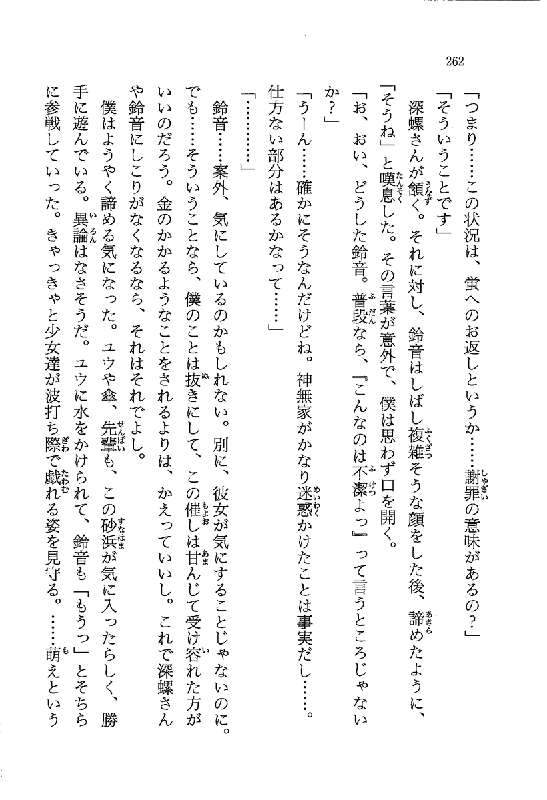 262
「つまり……この状況は、蛍へのお返しというか……謝罪の意味があるの？」
「そういうことです」
深螺さんが頷く。それに対し、鈴音はしばし複雑そうな顔をした後、諦めたように、
「そうね」と嘆息した。その言葉が意外で、僕は思わず口を開く。
「お、おい、どうした鈴音。普段なら、『こんなのは不潔よっ』って言うところじゃない
か？」
「うーん……確かにそうなんだけどね。神無家がかなり迷惑かけたことは事実だし……。
仕方ない部分はあるかなって……」
「…………」
鈴音……案外、気にしているのかもしれない。別に、彼女が気にすることじゃないのに。
でも……そういうことなら、僕のことは抜きにして、この催しは甘んじて受け容れた方が
いいのだろう。金のかかるようなことをされるよりは、かえっていいし。これで深螺さん
や鈴音にしこりがなくなるなら、それはそれでよし。
僕はようやく諦める気になった。ユウや鑫、先輩も、この砂浜が気に入ったらしく、勝
手に遊んでいる。異論はなさそうだ。ユウに水をかけられて、鈴音も「もうっ」とそちら
に参戦していった。きゃっきゃと少女達が波打ち際で戯れる姿を見守る。……萌えという